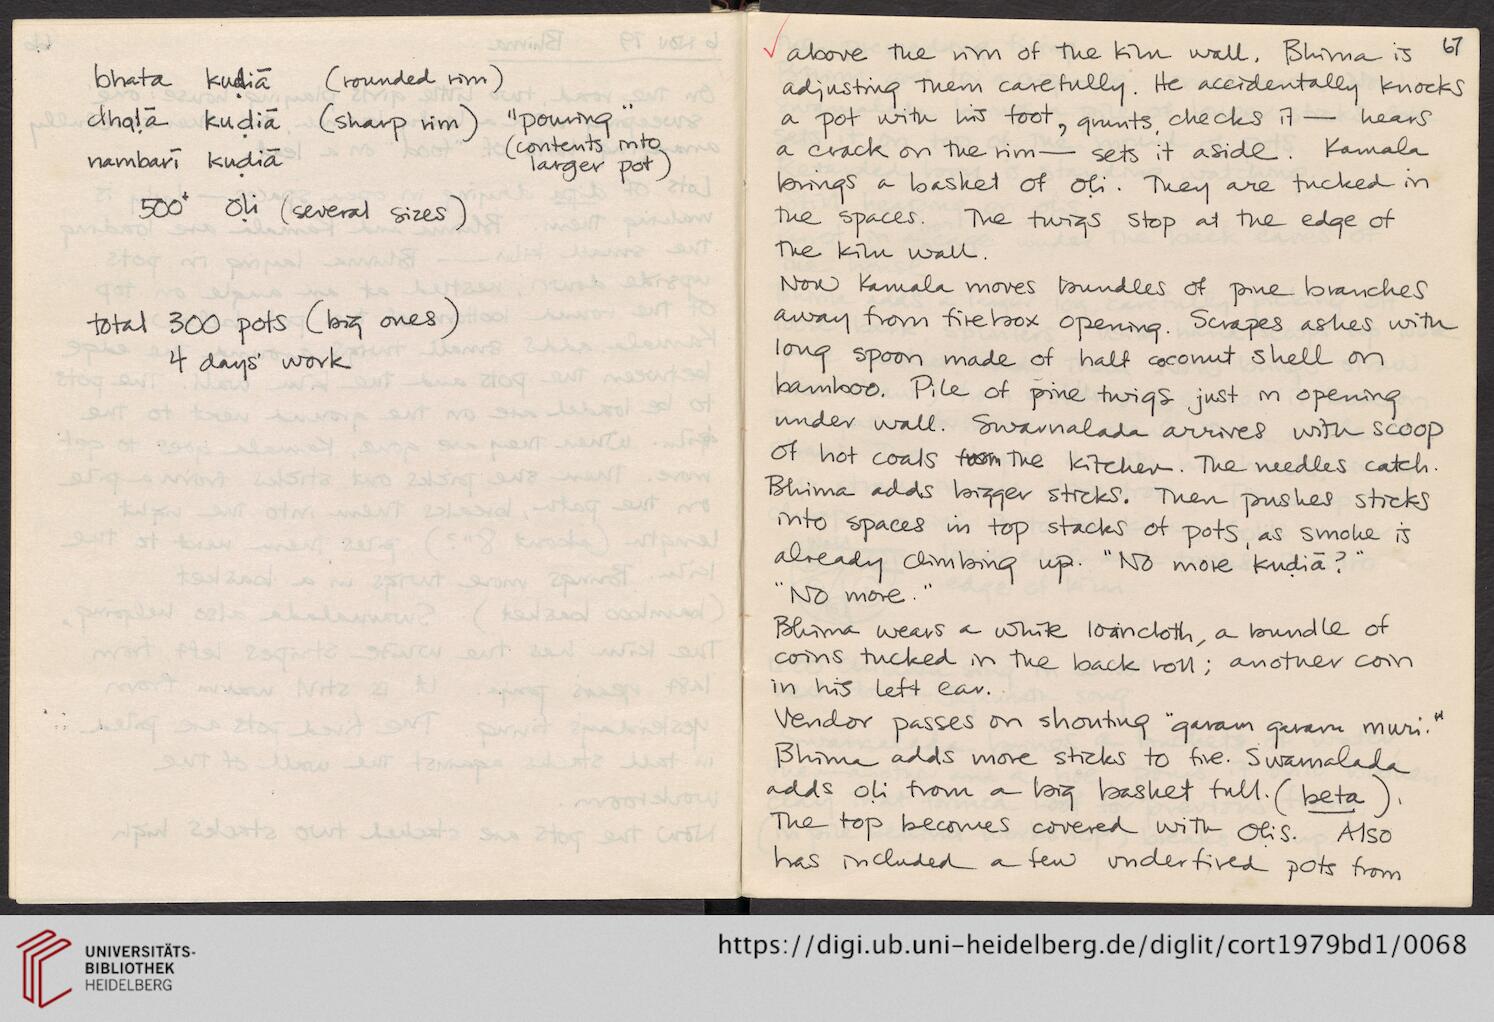 bhata kuḍiā (rounded rim)
dhalā kuḍiā (sharp rim) "pouring"
(contents into
larger pot)
nambarī kuḍiā
500+ oḷi (several sizes)
total 300 pots (big ones)
4 days' work
67
above the rim of the kiln wall. Bhima is
adjusting them carefully. He accidentally knocks
a pot with his foot, grunts, checks it — hears
a crack on the rim — sets it aside. Kamala
brings a basket of oḷi. They are tucked in
the spaces. The twigs stop at the edge of
the kiln wall.
Now Kamala moves bundles of pine branches
away from firebox opening. Scrapes ashes with
long spoon made of half coconut shell on
bamboo. Pile of pine twigs just in opening
under wall. Swarnalada arrives with scoop
of hot coals from the kitchen. The needles catch.
Bhima adds bigger sticks. Then pushes sticks
into spaces in top stacks of pots, as smoke is
already climbing up. "No more kuḍiā?"
"No more."
Bhima wears a white loincloth, a bundle of
coins tucked in the back roll; another coin
in his left ear.
Vendor passes on shouting "garam garam muri."
Bhima adds more sticks to fire. Swarnalada
adds oḷi from a big basket full. (beta).
The top becomes covered with oḷis. Also
has included a few underfired pots from
UNIVERSITÄTS-
BIBLIOTHEK
HEIDELBERG
https://digi.ub.uni-heidelberg.de/diglit/cort1979bd1/0068